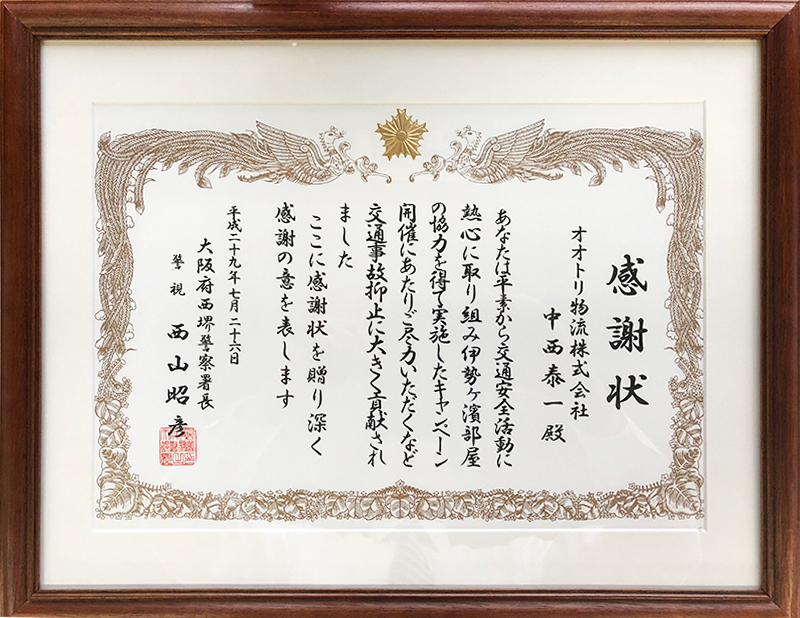 感謝状
オオトリ物流株式会社
中西泰一殿
あなたは平素から交通安全活動に
熱心に取り組み伊勢ヶ濱部屋
の協力を得て実施したキャンペーン
開催にあたりご尽力いただくなど
交通事故抑止に大きく貢献され
ました
ここに感謝状を贈り深く
感謝の意を表します
平成二十九年七月二十六日
大阪府西堺警察署長
警視 西山昭彦